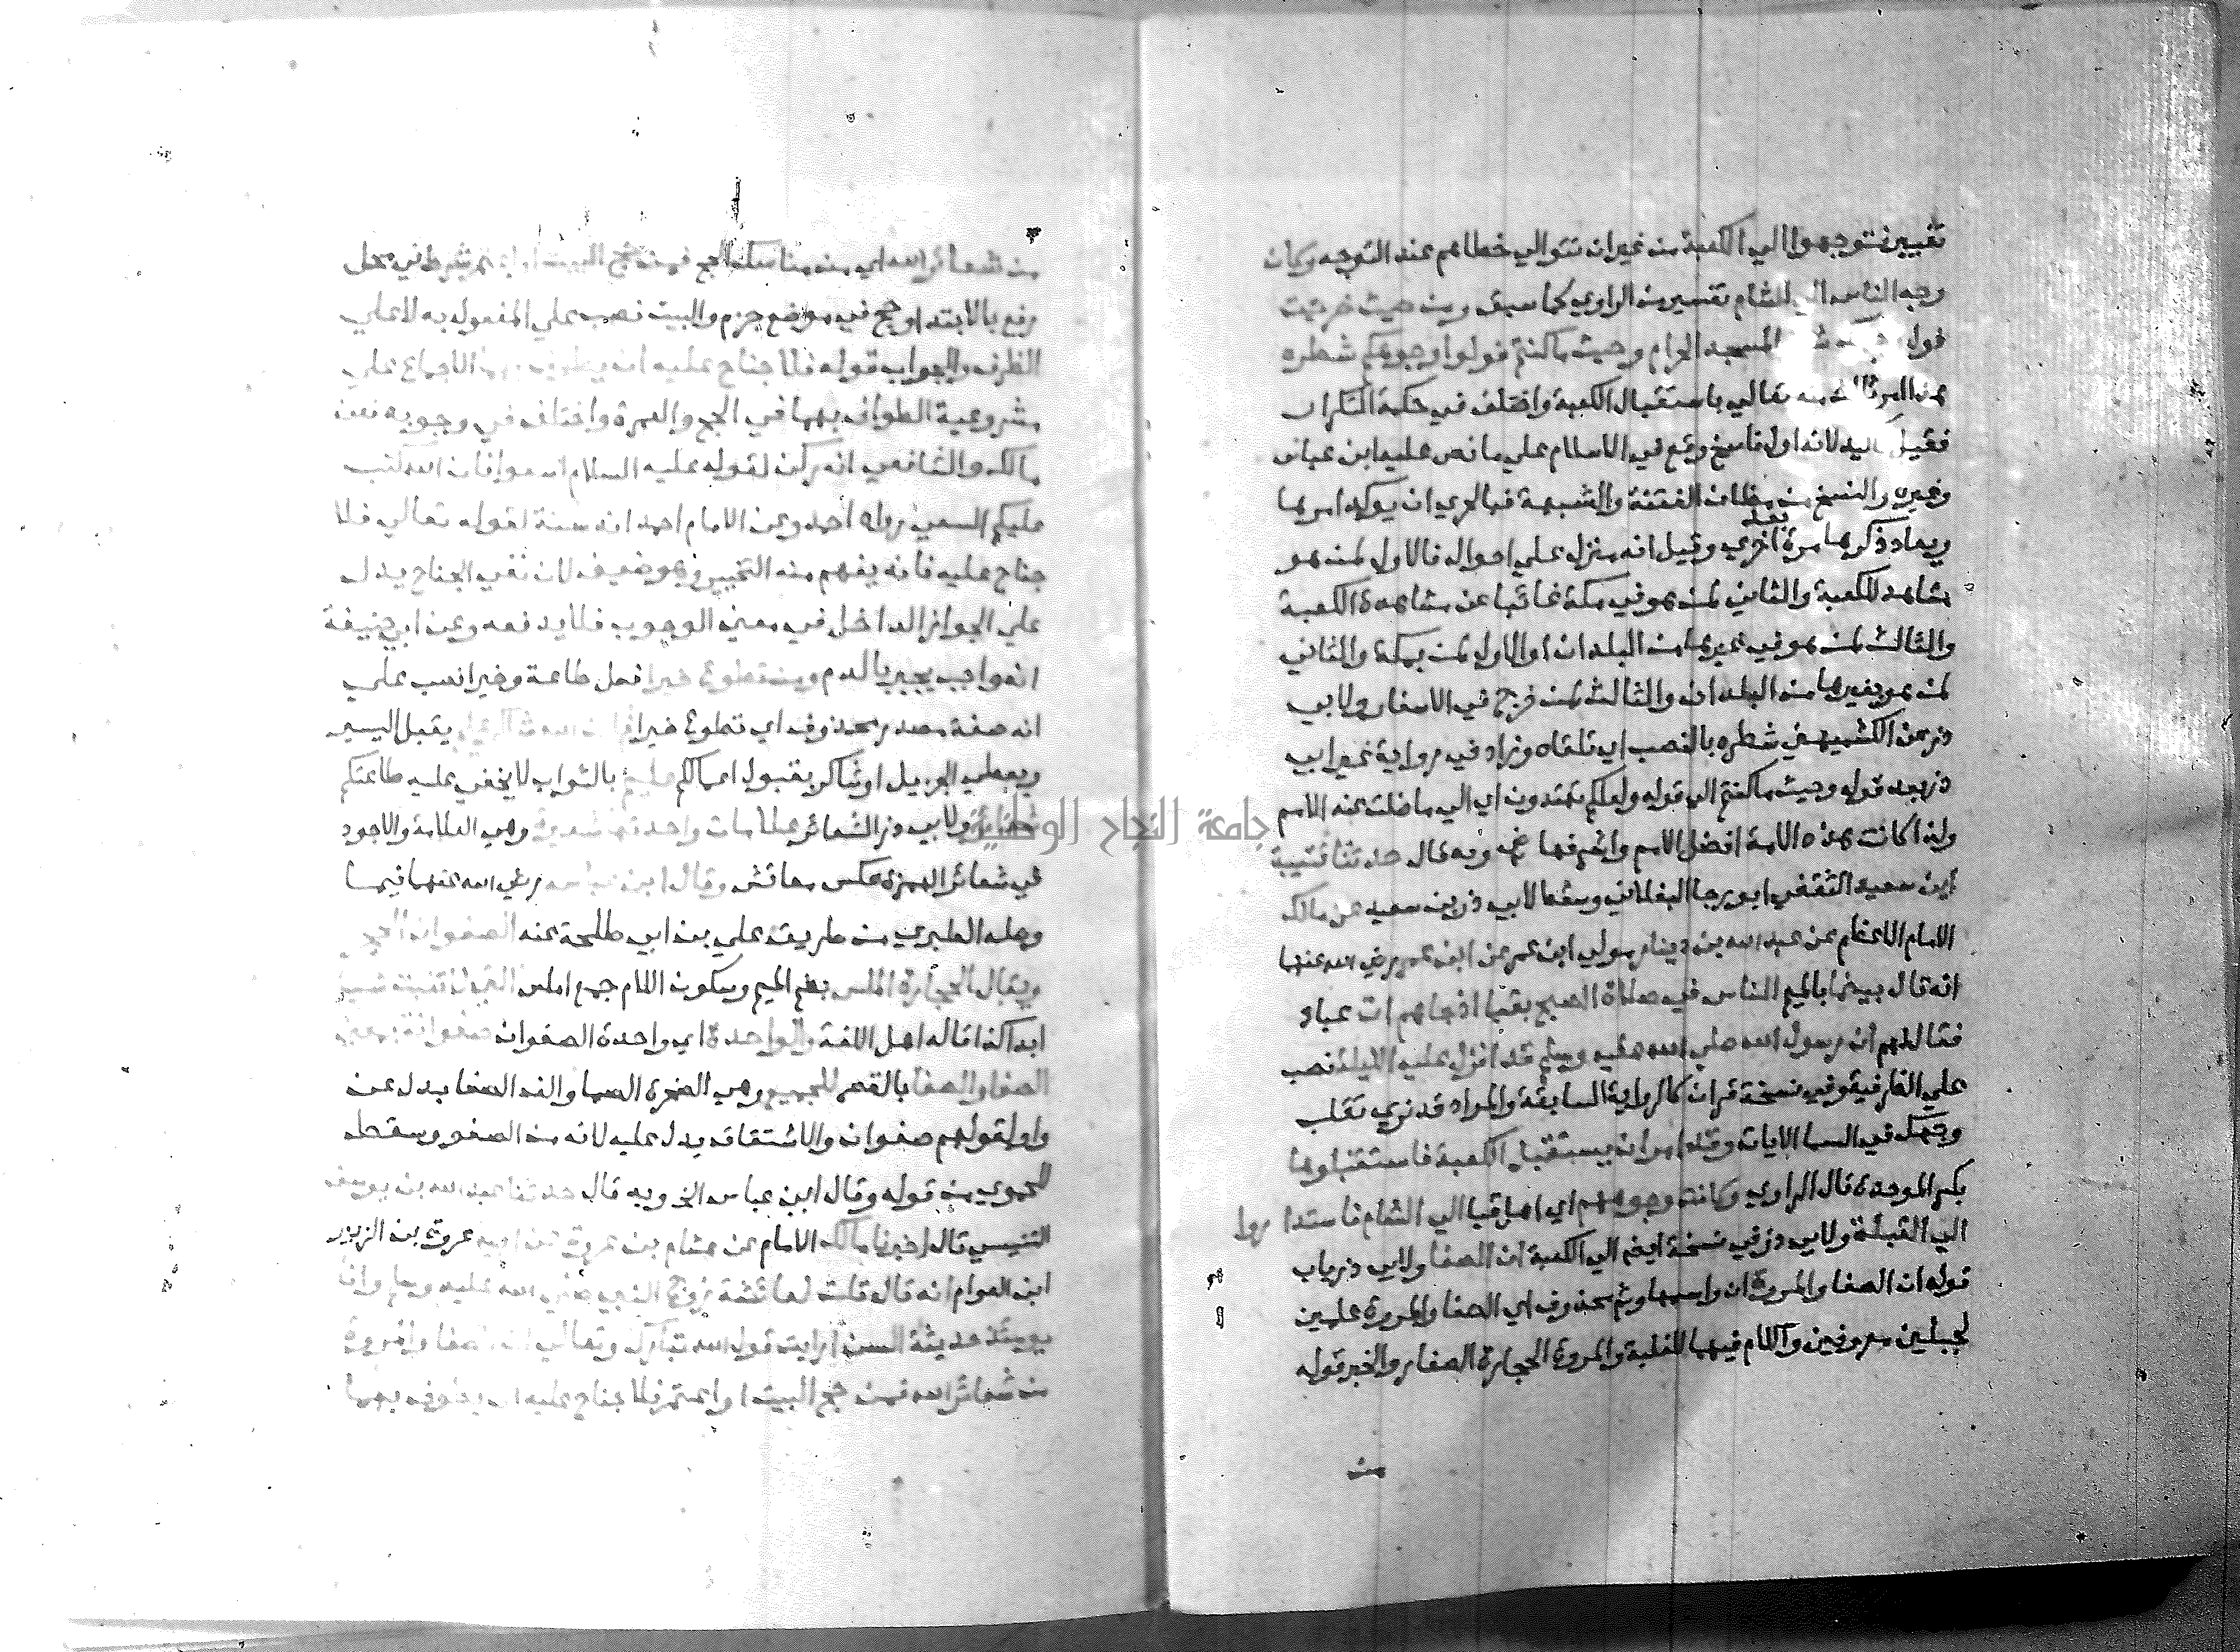 تغيير فتوجهوا الي الكعبة من غير ان تتوالي خطاهم عند التوجه وكان
وجه الناس الي الشام تفسير من الراوي كما سبق ومن حيث خرجت
فول المسجد الحرام وحيث ما كنتم فولوا وجوهكم شطره
تعالي باستقبال الكعبة واختلف في حكمة التكرار
فقيل لانه اول ناسخ وقع في الاسلام علي ما نص عليه ابن عباس
وغيره والنسخ من مظان الفتنة والشبهة فبالحري ان يوكد امرها
ويعاد ذكرها مرة بعد اخري وقيل انه منزل علي احوال فالاول لمن هو
مشاهد للكعبة والثاني لمن هو في مكة غائبا عن مشاهدة الكعبة
والثالث لمن هو في غيرها من البلدان او الاول لمن بمكة والثاني
لمن هو بغيرها من البلدان والثالث لمن خرج في الاسفار ولابي
ذر عن الكشميهني شطره بالنصب اي تلقاه وزاد في رواية غير ابي
ذر بعد قوله وحيث ما كنتم الي قوله ولعلكم تهتدون اي الي ما ضلت عنه الامم
ولذا كانت هذه الامة افضل الامم واشرفها وبه قال حدثنا قتيبة
ابن سعيد الثقفي ابو رجا البغلاني وسقط لابي ذر بن سعيد عن مالك
الامام الاعظم عن عبد الله بن دينار مولي ابن عمر عن ابن عمر رضي الله عنهما
انه قال بينما بالميم الناس في صلاة الصبح بقبا اذ جاهم ات عباد
فقال لهم ان رسول الله صلي الله عليه وسلم قد انزل عليه الليلة نصب
علي الظرفية وفي نسخة قران كالرواية السابقة والمراد قد نري تقلب
وجهك في السما الايات وقد امر ان يستقبل الكعبة فاستقبلوها
بكسر الموحدة قال الراوي وكانت وجوههم اي اهل قبا الي الشام فاستدا روا
الي القبلة ولابي ذر في نسخة ايضم الي الكعبة ان الصفا ولابي ذر باب
قوله ان الصفا والمروة ان واسمها وثم محذوف اي الصفا والمروة علمين
لجبلين معروفين واللام فيهما للغلبة والمروة الحجارة الصغار والخبر قوله
من
من شعائر الله اي من مناسك الحج فمن حج البيت او اعتمر شرط في محل
رفع بالابتدا وحج في موضع جزم والبيت نصب علي المفعول به لا علي
الظرف والجواب قوله فلا جناح عليه ان يطوف بهما الاجماع علي
مشروعية الطواف بهما في الحج والعمرة واختلف في وجوبه فعن
مالك والشافعي انه ركن لقوله عليه السلام اسعوا فان الله كتب
عليكم السعي رواه احمد وعن الامام احمد انه سنة لقوله تعالي فلا
جناح عليه فانه يفهم منه التخيير وهو ضعيف لان نفي الجناح يدل
علي الجواز الداخل في معني الوجوب فلا يدفعه وعن ابي حنيفة
انه واجب يجبر بالدم ومن تطوع خيرا فعل طاعة وخيرا نصب علي
انه صفة مصدر محذوف اي تطوع خيرا فان الله شاكر عليم يقبل اليسير
ويعطي الجزيل او شاكر بقبول اعمالكم عليم بالثواب لا يخفي عليه طاعتكم
شعائر ولابي ذر الشعائر علامات واحدتها شعيرة وهي العلامة والاجود
في شعائر الهمزة عكس معائش وقال ابن عباس رضي الله عنهما فيما
وصله الطبري من طريق علي بن ابي طلحة عنه الصفوان الحجر
ويقال الحجارة الملس بضم الميم وسكون اللام جمع املس التي لا تنبت شيا
ابدا كذا قاله اهل اللغة والواحدة اي واحدة الصفوان صفوانة بمعني
الصفا والصفا بالقصر للجميع وهي الصخرة الصما والف الصفا بدل عن
واو لقولهم صفوان والاشتقاق يدل عليه لانه من الصفو وسقط
للحموي من قوله وقال ابن عباس الخ وبه قال حدثنا عبد الله بن يوسف
التنيسي قال اخبرنا مالك الامام عن هشام بن عروة عن ابيه عروة بن الزبير
ابن العوام انه قال قلت لعائشة زوج النبي صلي الله عليه وسلم وانا
يومئذ حديثة السن ارايت قول الله تبارك وتعالي ان الصفا والمروة
من شعائر الله فمن حج البيت او اعتمر فلا جناح عليه ان يطوف بهما
جامعة النجاح الوطنية